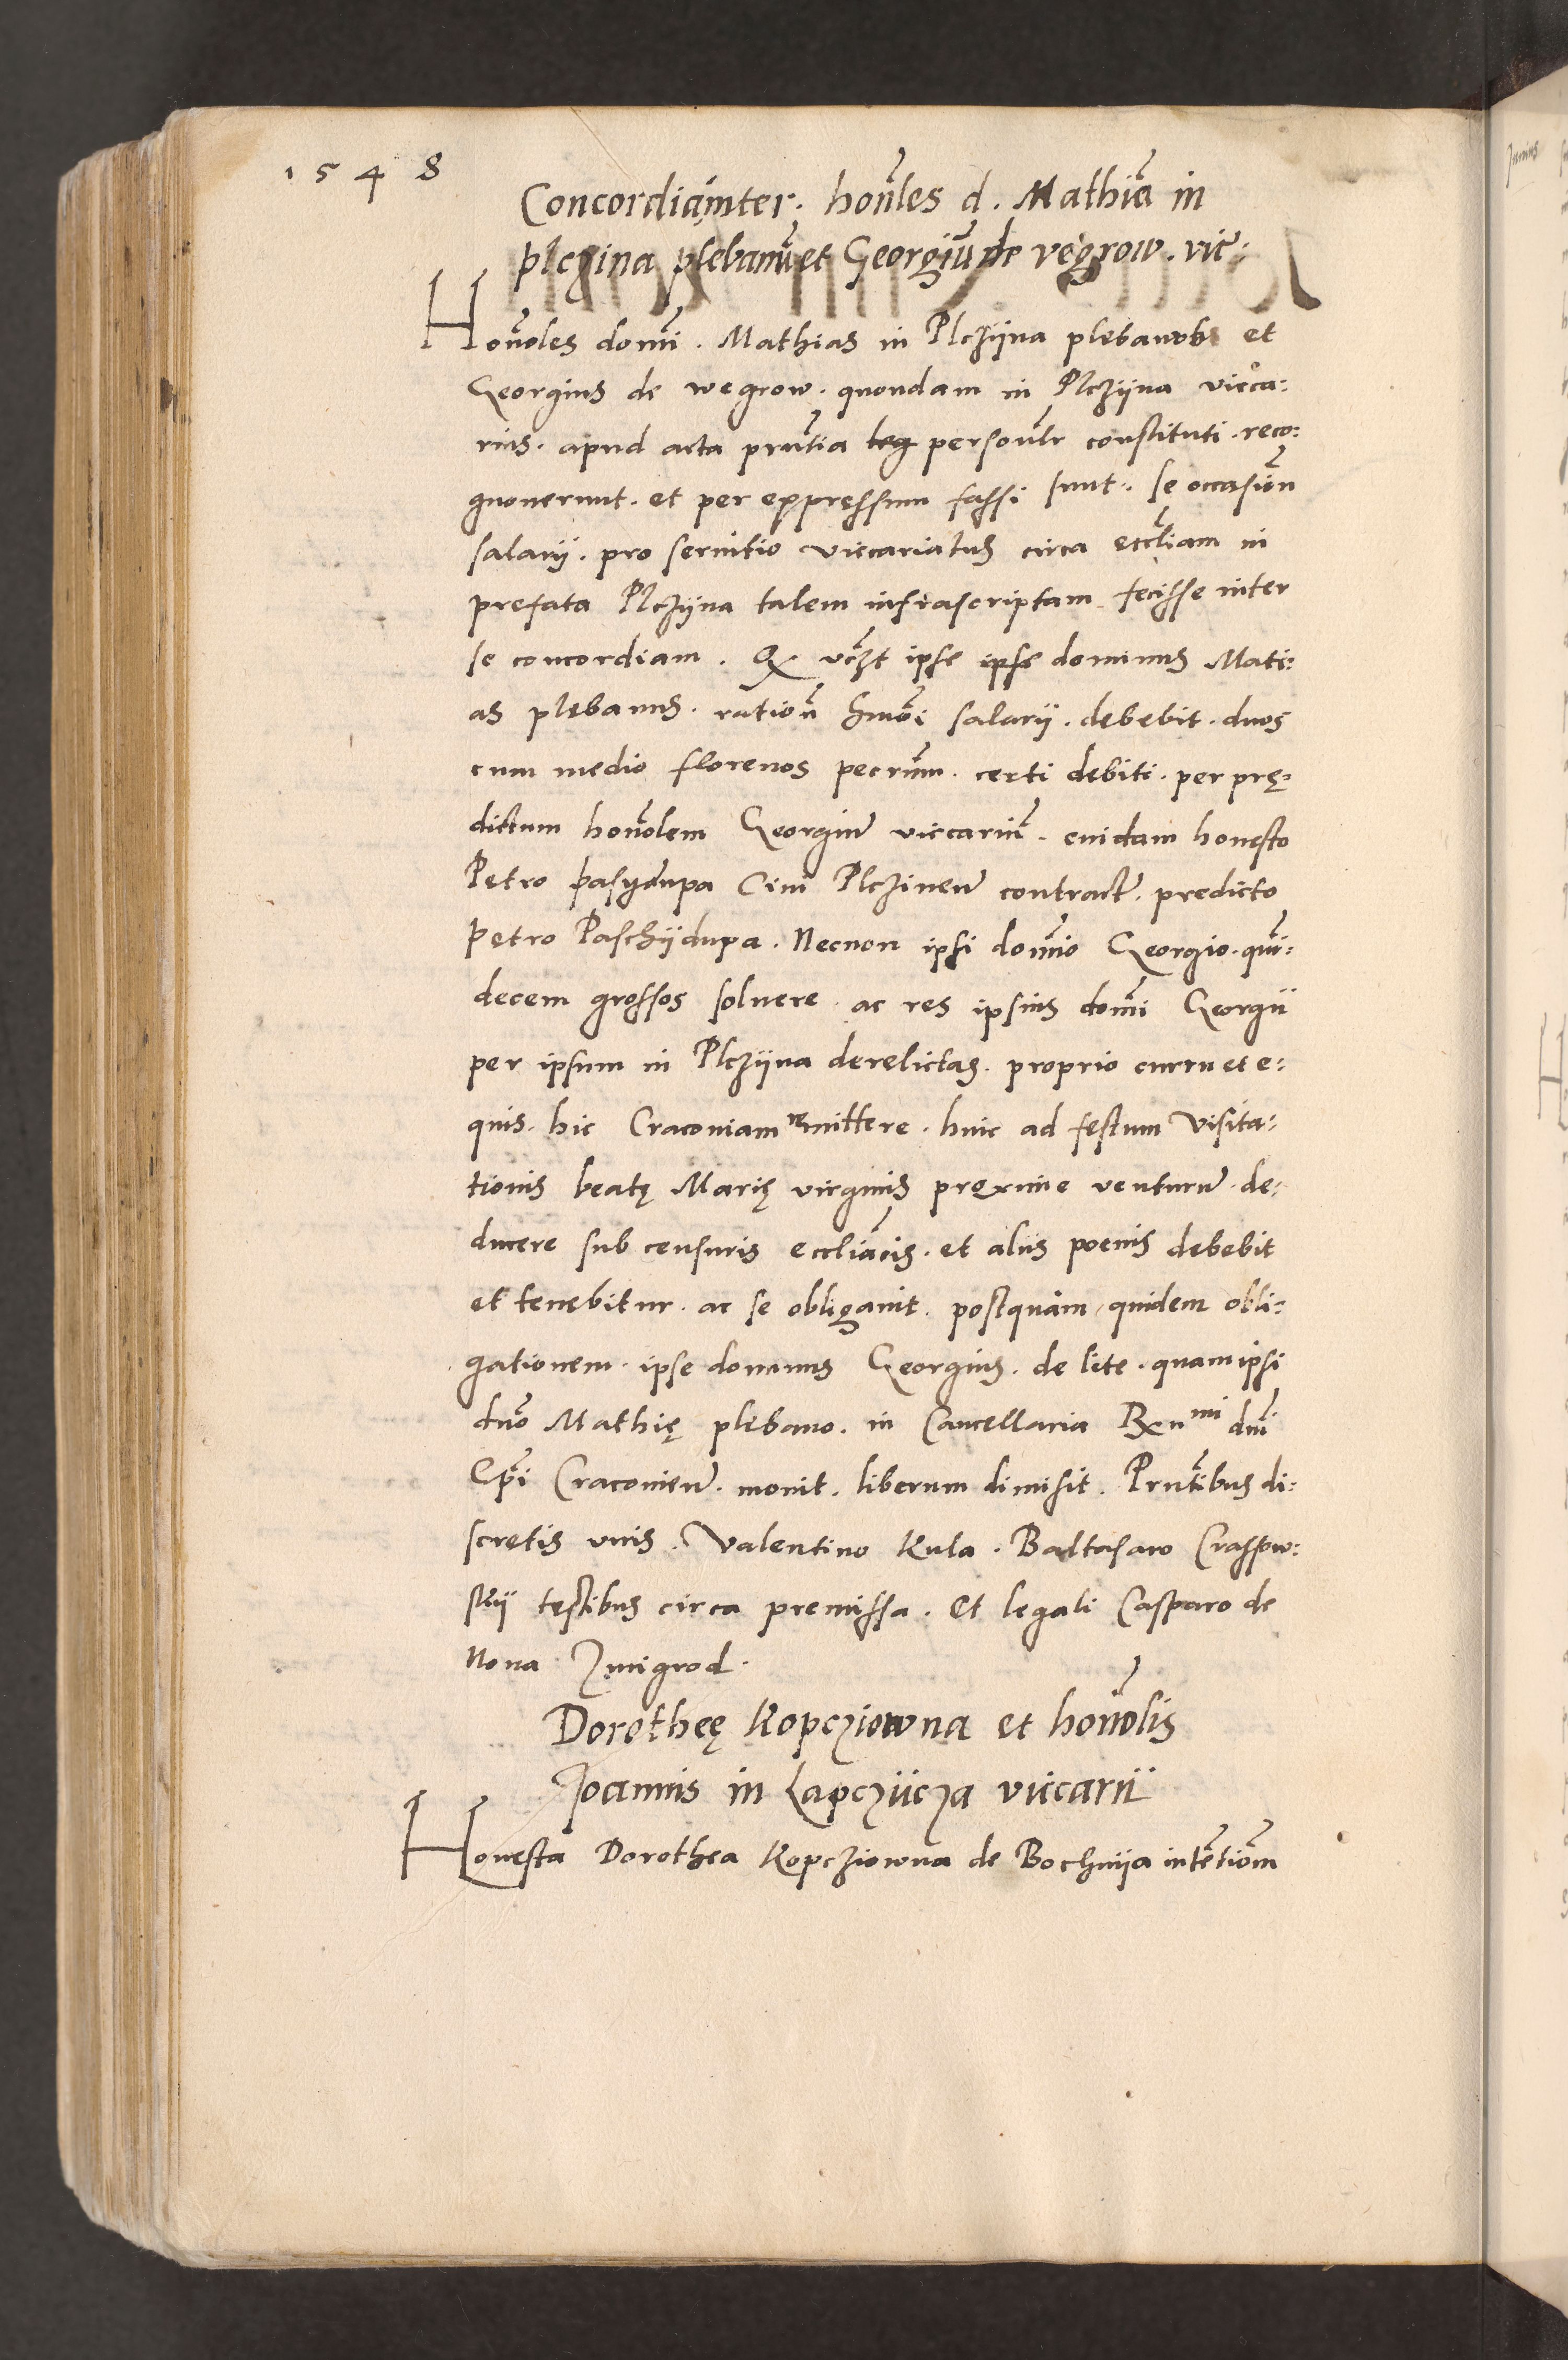 1548
Concordia inter. honles d. Mathia in
plczina plebanu et Georgiu de vegrow. vic:
Honoles domi. Mathias in Plczijna plebanus et
Georgius de wegrow. quondam in Plczijna vicca:
rius. apud acta pruntia leg personlr constituti. reco:
gnouerunt. et per expressum fassi sunt. se occasion
salarij. pro seruitio viccariatus circa eccliam in
prefata Plczijna talem infrascriptam fecisse inter
se concordiam. Q vczt ipse ipse dominus Mati:
as plebanus. ration hmoi salarij. debebit. duos
cum medio florenos pecrum. certi debiti. per prę:
dictum honolem Georgium viccariu. cuidam honesto
Petro pasydupa Ciui Plczinen contract. predicto
Petro Paschijdupa. Necnon ipsi domio Georgio. qui:
decem grossos soluere. ac res ipsius domi Georgii
per ipsum in Plczijna derelictas. proprio curru et e:
quis. hic Cracouiam remittere. huic ad festum Visita:
tionis beatę Marię virginis proxime venturum. de:
ducere sub censuris eccliacis. et aliis poenis debebit
et tenebitur. ac se obligauit. postquam quidem obli:
gationem. ipse dominus Georgius. de lite. quam ipsi
dno Mathię plebano. in Cancellaria Rxnmi dni
Epi Cracouien. mouit. liberum dimisit. Pruntibus di:
scretis viris. Valentino Kula. Baltasaro Crassow:
skij testibus circa premissa. Et legali Casparo de
Noua Zmigrod.
Dorotheę Kopcziowna et honolis
Joannis in Lapcziicza viccarii
Honesta Dorothea Kopcziowna de Bochnija intentiom
Junius